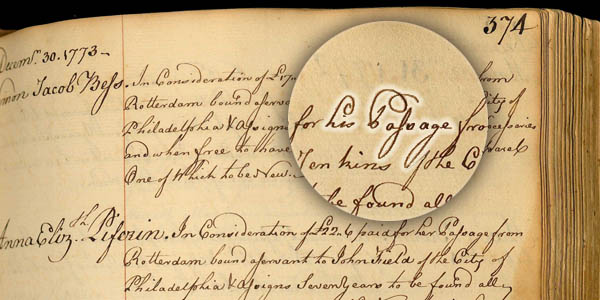 374
Decem.r 30. 1773
Jacob Bess. In Consideration of £17. from
Rotterdam bound a servant City of
Philadelphia & Assigns for his Passage
and when free to have Jenkins of the C
One of Which to be New. be found all
Anna Eliz.th Piferin. In Consideration of £22.6 paid for her Passage from
Rotterdam bound a servant to John Field of the City of
Philadelphia & Assigns Seven Years to be found all